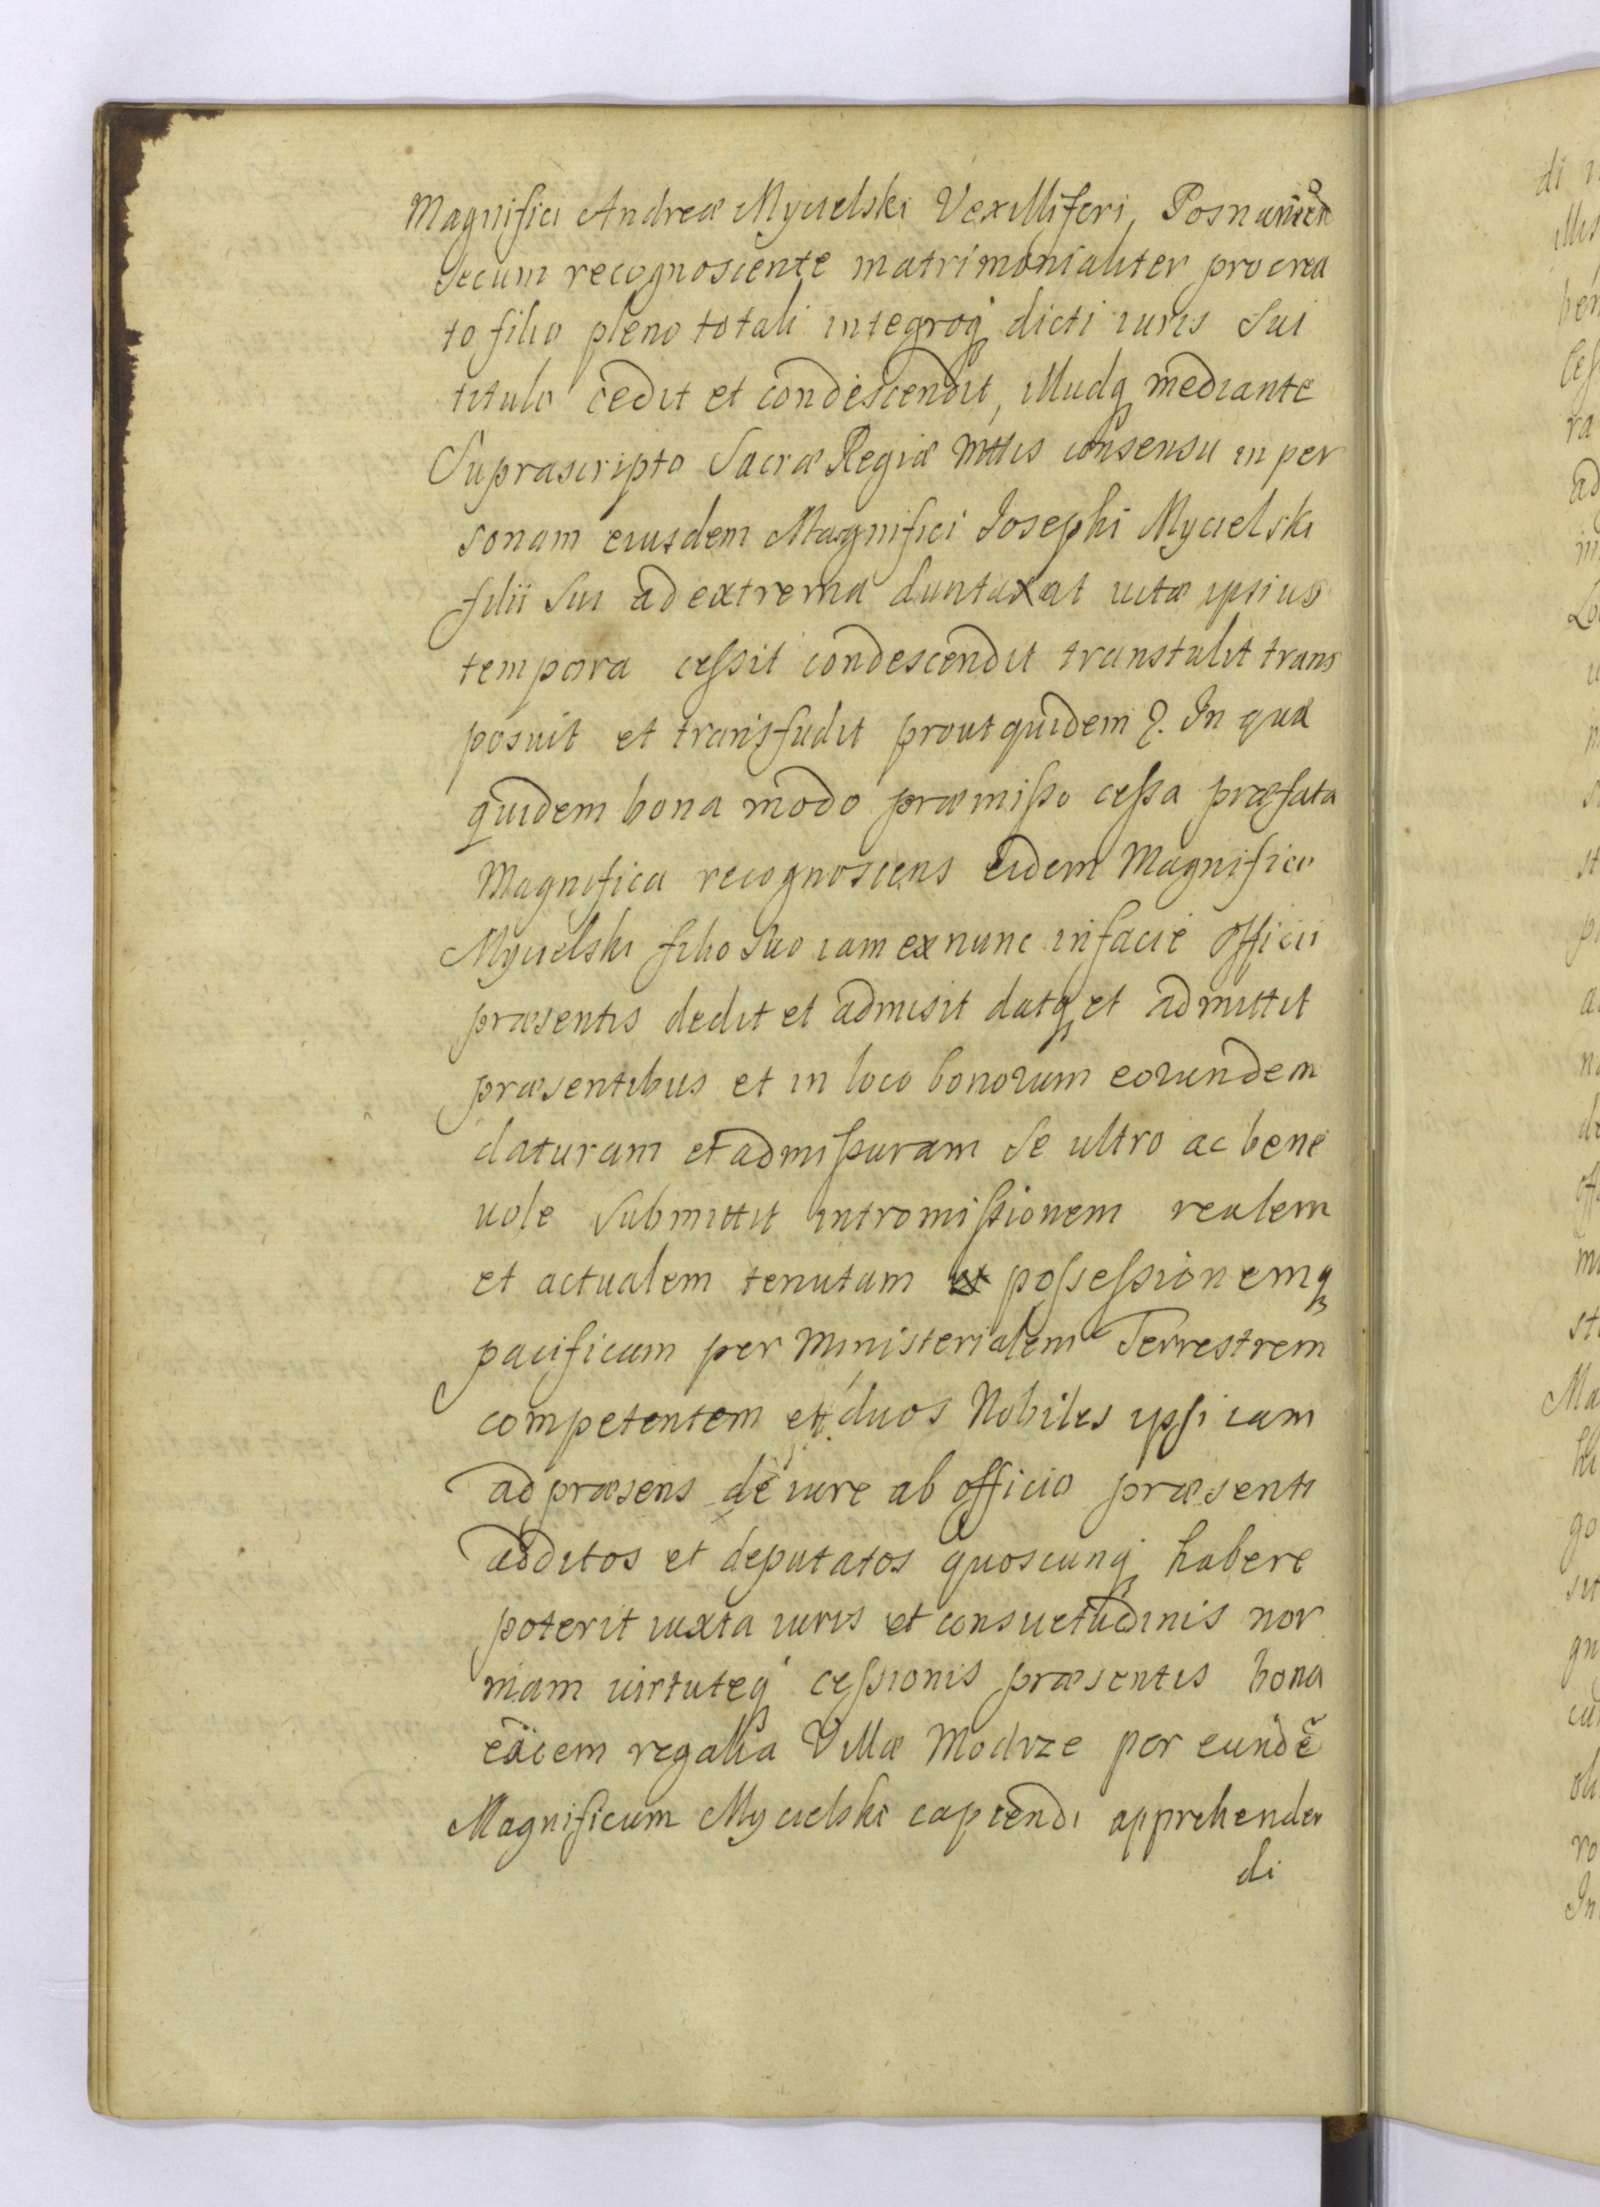 Magnifici Andreæ Mycielski Vexilliferi, Posnanien
secum recognoscente matrimonialiter procrea
to filio pleno totali integroq dicti iuris sui
titulo cedit et condescendit, illudq mediante
Suprascripto Sacræ Regiæ Mttis consensu in per
sonam eiusdem Magnifici Josephi Mycielski
filii sui ad extrema duntaxat vitæ ipsius
tempora cessit condescendit transtulit trans
posuit et transfudit prout quidem In quæ
quidem bona modo præmisso cessa præfata
Magnifica recognoscens eidem Magnifico
Mycielski filio suo iam ex nunc in facie officii
præsentis dedit et admisit datq et admittit
præsentibus et in loco bonorum eorundem
daturam et admissuram se ultro ac bene
uole submittit intromissionem realem
et actualem tenutam et possessionemq
pacificam per Ministerialem Terrestrem
competentem et duos Nobiles ipsi iam
ad præsens de iure ab officio præsenti
additos et deputatos quoscunq habere
poterit iuxta iuris et consuetudinis nor
mam uirtuteq cessionis præsentis bona
eadem regalia Villæ Modrze per eundẽ
Magnificum Mycielski capiendi apprehenden
di
di
illis
ra
ad
st
no
de
Ma
go
sit
ro
In